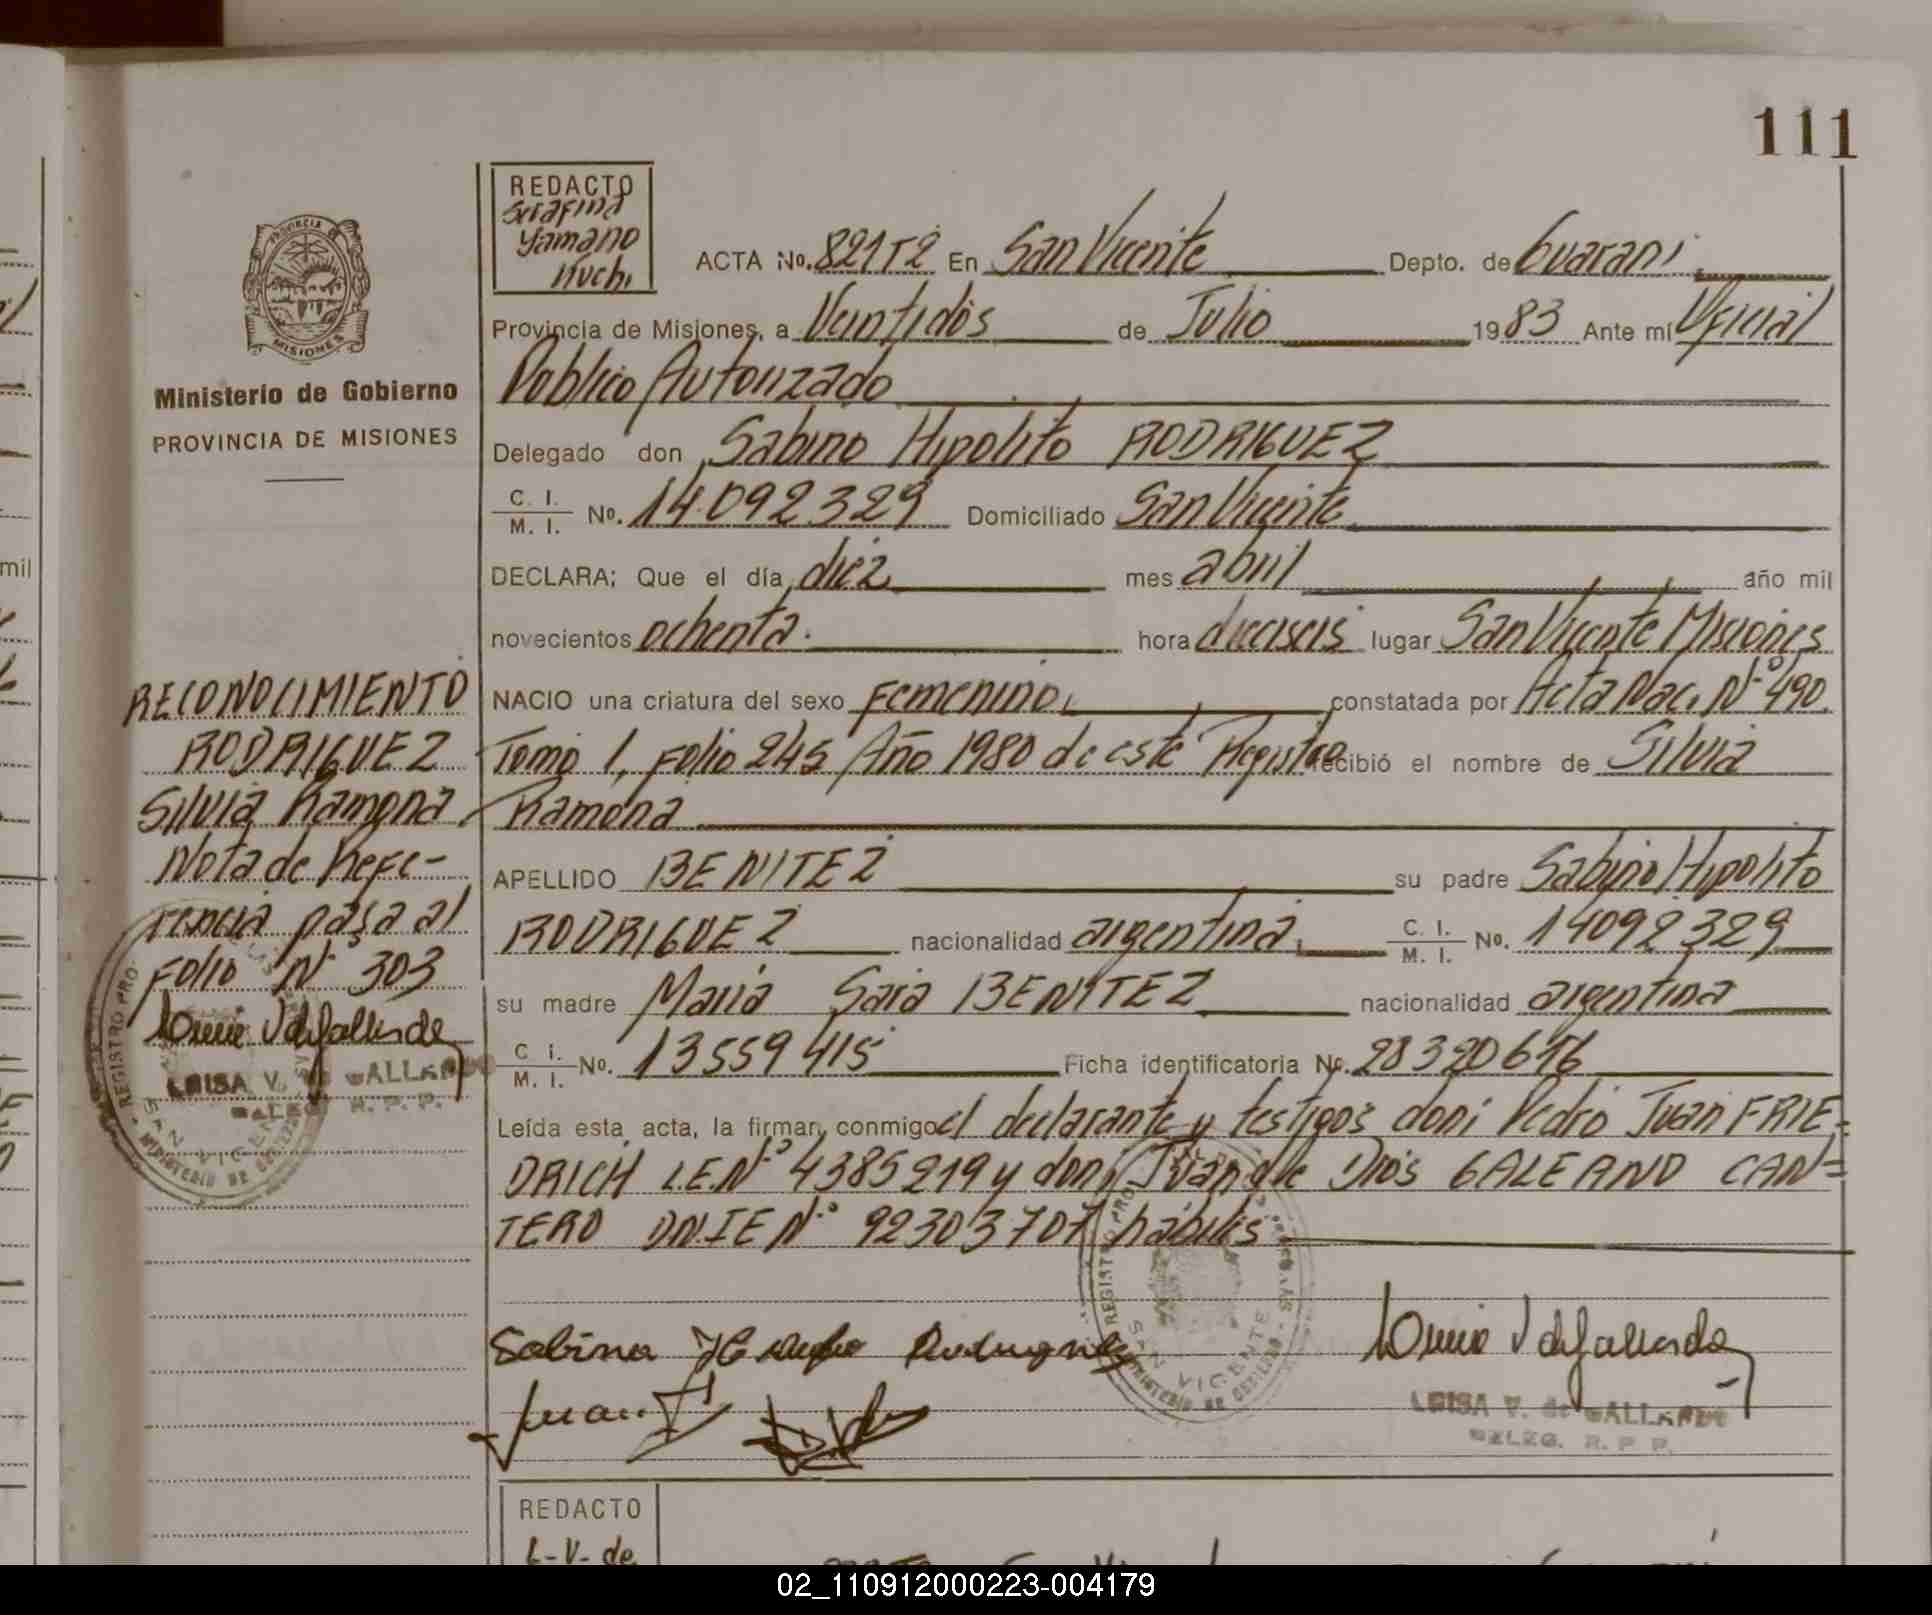 111
REDACTO
Serafina
Yamano
Kuchi
ACTA No. 821T2 En San Vicente Depto. de Guarani
Provincia de Misiones, a Veintidós de Julio 1983 Ante mí Oficial
Público Autorizado
Delegado don Sabino Hipolito RODRIGUEZ
C. I.
M. I. No. 14.092.329 Domiciliado San Vicente
DECLARA; Que el día diez mes abril año mil
novecientos ochenta. hora dieciseis lugar San Vicente Misiones
NACIO una criatura del sexo Femenino, constatada por Acta Nac. Nº 490.
Tomo 1, Folio 245 Año 1980 de este Registro recibió el nombre de Silvia
Ramona
APELLIDO BENITEZ su padre Sabino Hipolito
RODRIGUEZ nacionalidad argentina, C. I. M. I. No. 14092329
su madre María Sara BENITEZ nacionalidad argentina
C. I.
M. I. No. 13559415 Ficha identificatoria No. 28320676
Leída esta acta, la firman conmigo el declarante y testigos don: Pedro Juan FRIE-
DRICH L.E.Nº 4385219 y don: Juan de Dios GALEANO CAN=
TERO DN.IE Nº 92303707 hábiles
Sabino Hipolito Rodriguez
Juan
LUISA V. de GALLARDO
DELEG. R. P. P.
Ministerio de Gobierno
PROVINCIA DE MISIONES
PROVINCIA
MISIONES
RECONOCIMIENTO
RODRIGUEZ
Silvia Ramona
Nota de Refe-
rencia pasa al
Folio Nº 303
LUISA V. de GALLARDO
DELEG. R. P. P.
REGISTRO PRO.
SAN VICENTE
MINISTERIO DE GOBIERNO
REGISTRO PRO.
SAN VICENTE
MINISTERIO DE GOBIERNO
mil
REDACTO
L-V- de
02_110912000223-004179